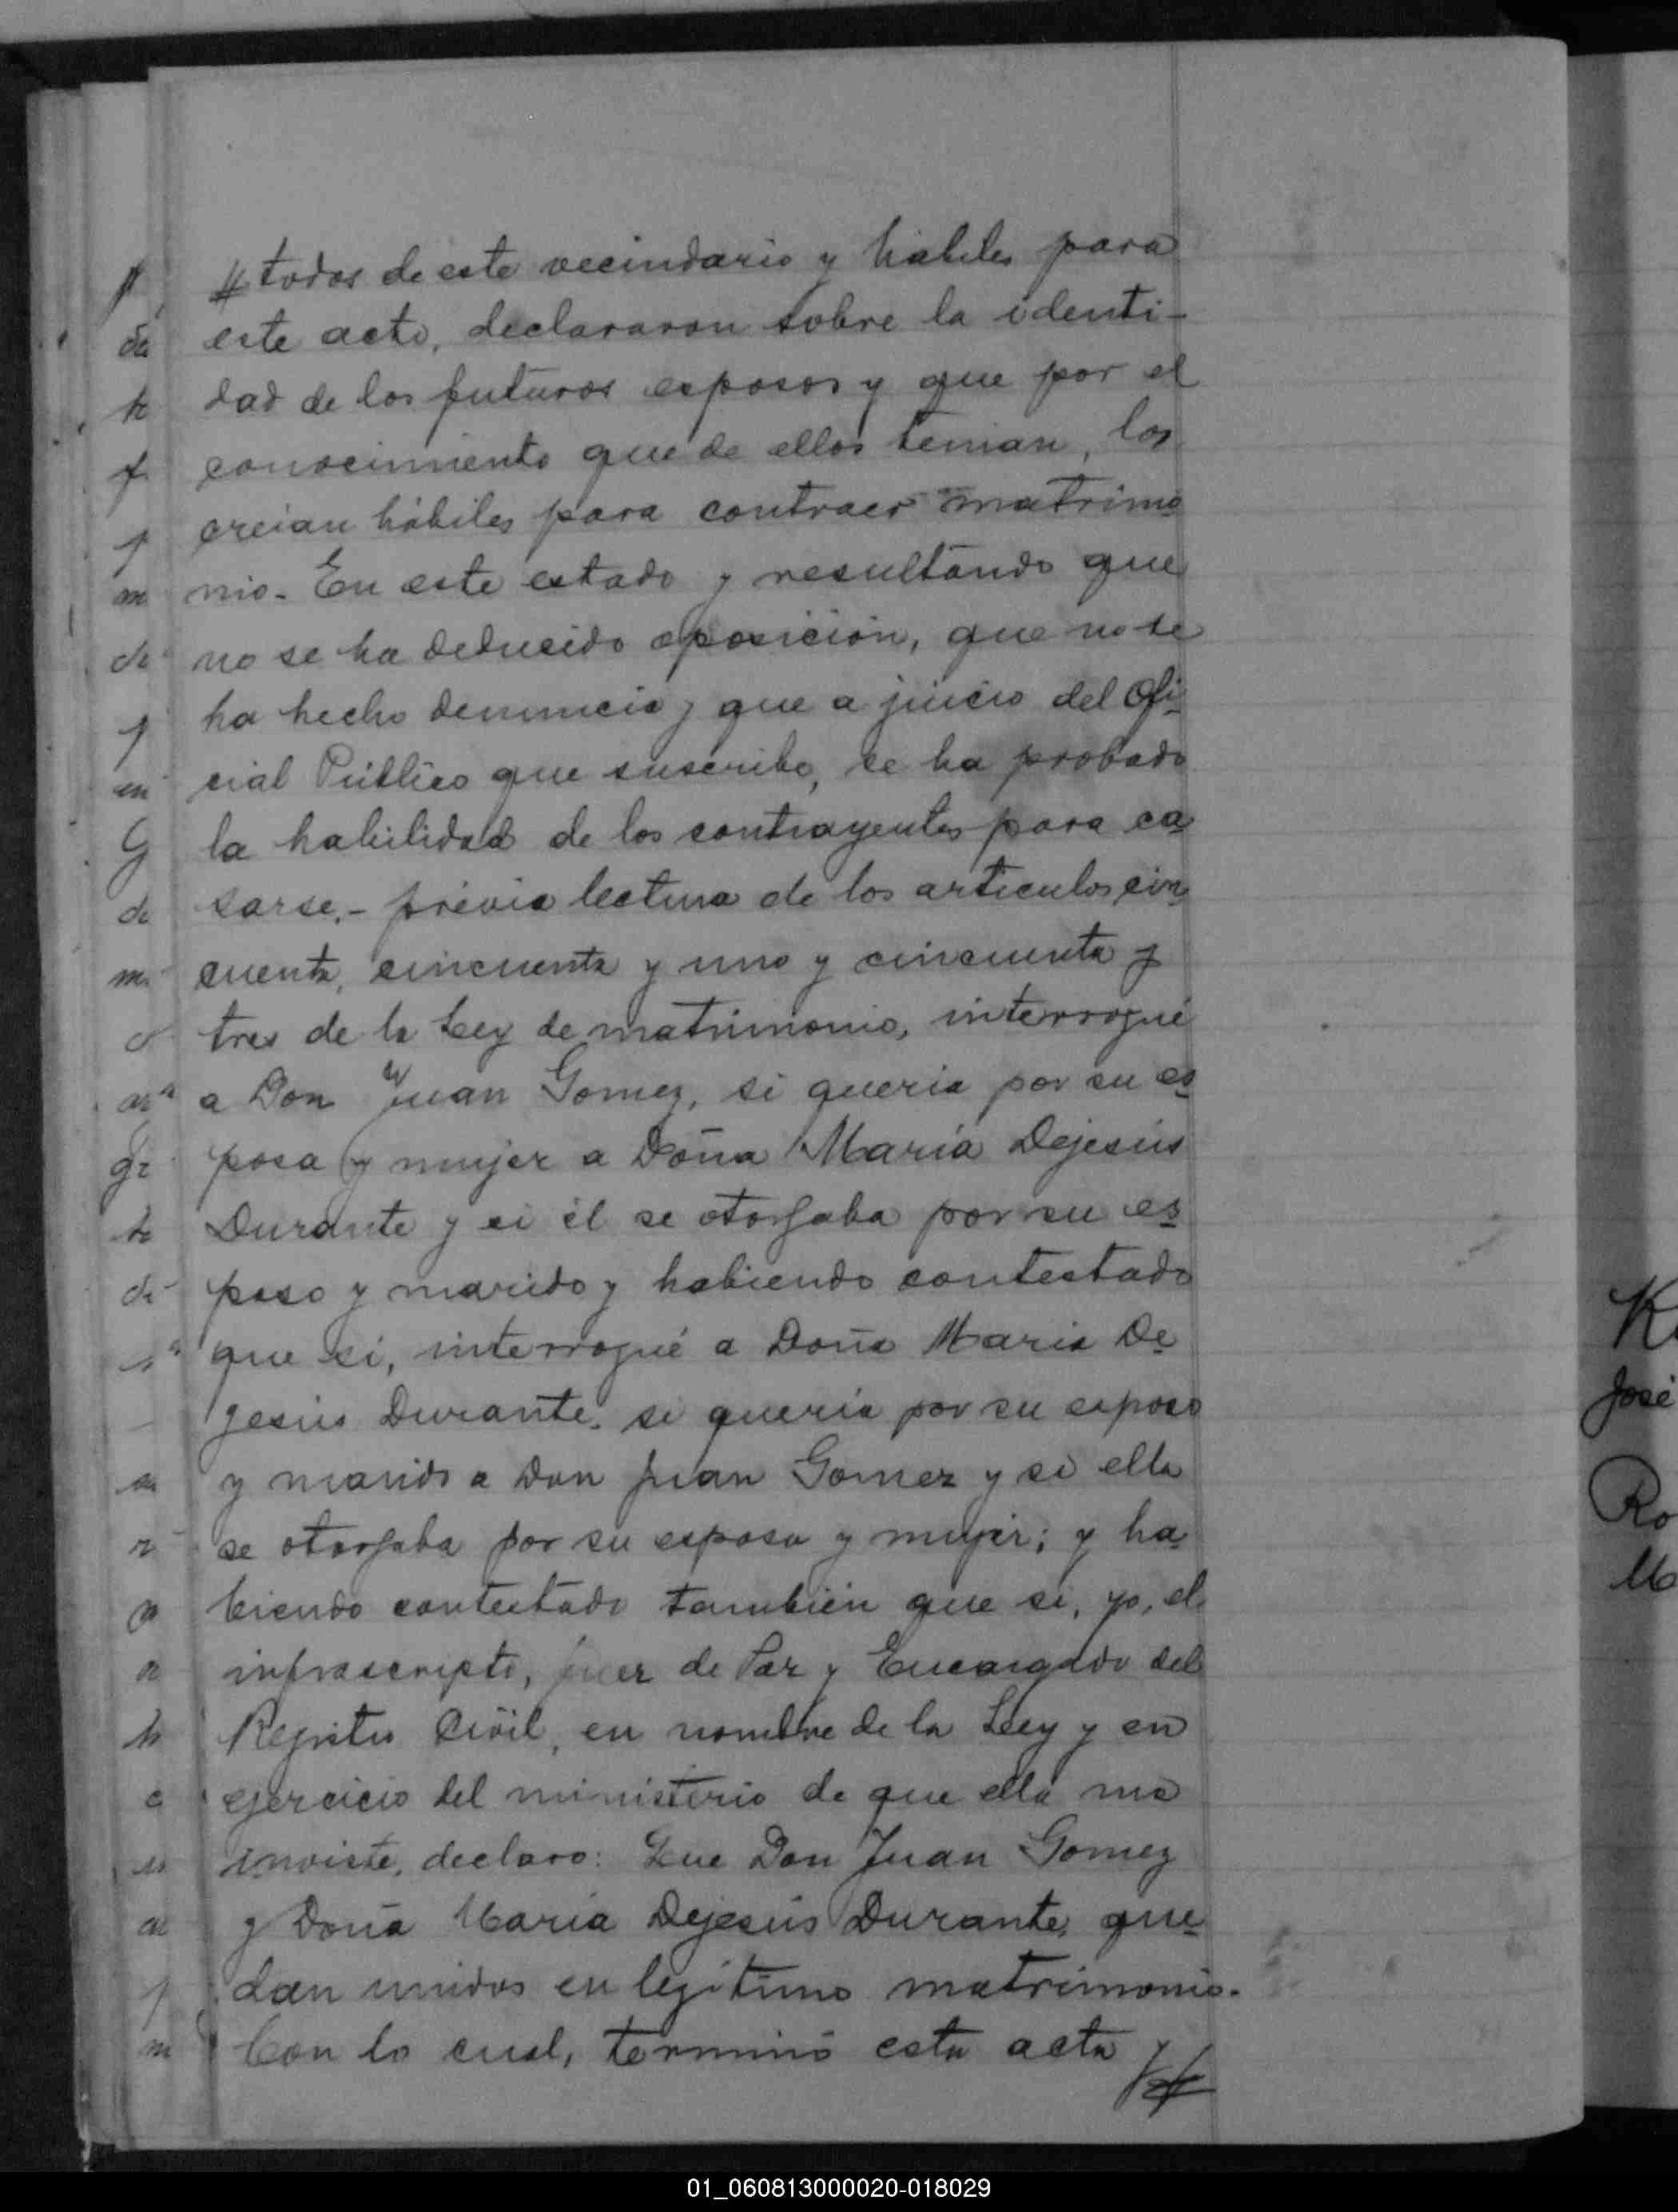 # todos de este vecindario y hábiles para
este acto, declararon sobre la identi-
dad de los futuros esposos y que por el
conocimiento que de ellos tenian, los
creian hábiles para contraer matrimo
nio. En este estado y resultando que
no se ha deducido oposición, que no se
ha hecho denuncia y que a juicio del Ofi
cial Público que suscribe, se ha probado
la habilidad de los contrayentes para ca
sarse.- previa lectura de los articulos cin
cuenta, cincuenta y uno y cincuenta y
tres de la Ley de matrimonio, interrogué
a Don Juan Gomez, si queria por su es
posa y mujer a Doña María Dejesús
Durante y si él se otorgaba por su es
poso y marido y habiendo contestado
que si, interrogué a Doña Maria De
jesús Durante, si queria por su esposo
y marido a Don Juan Gomez y si ella
se otorgaba por su esposa y mujer; y ha
biendo contestado también que si, yo, el
infrascripto, Juez de Paz y Encargado del
Registro Civil, en nombre de la Ley y en
ejercicio del ministerio de que ella me
inviste, declaro: Que Don Juan Gomez
y Doña María Dejesús Durante, que
dan unidos en legitimo matrimonio.
Con lo cual, terminó esta acta y
José
Ro
01_060813000020-018029